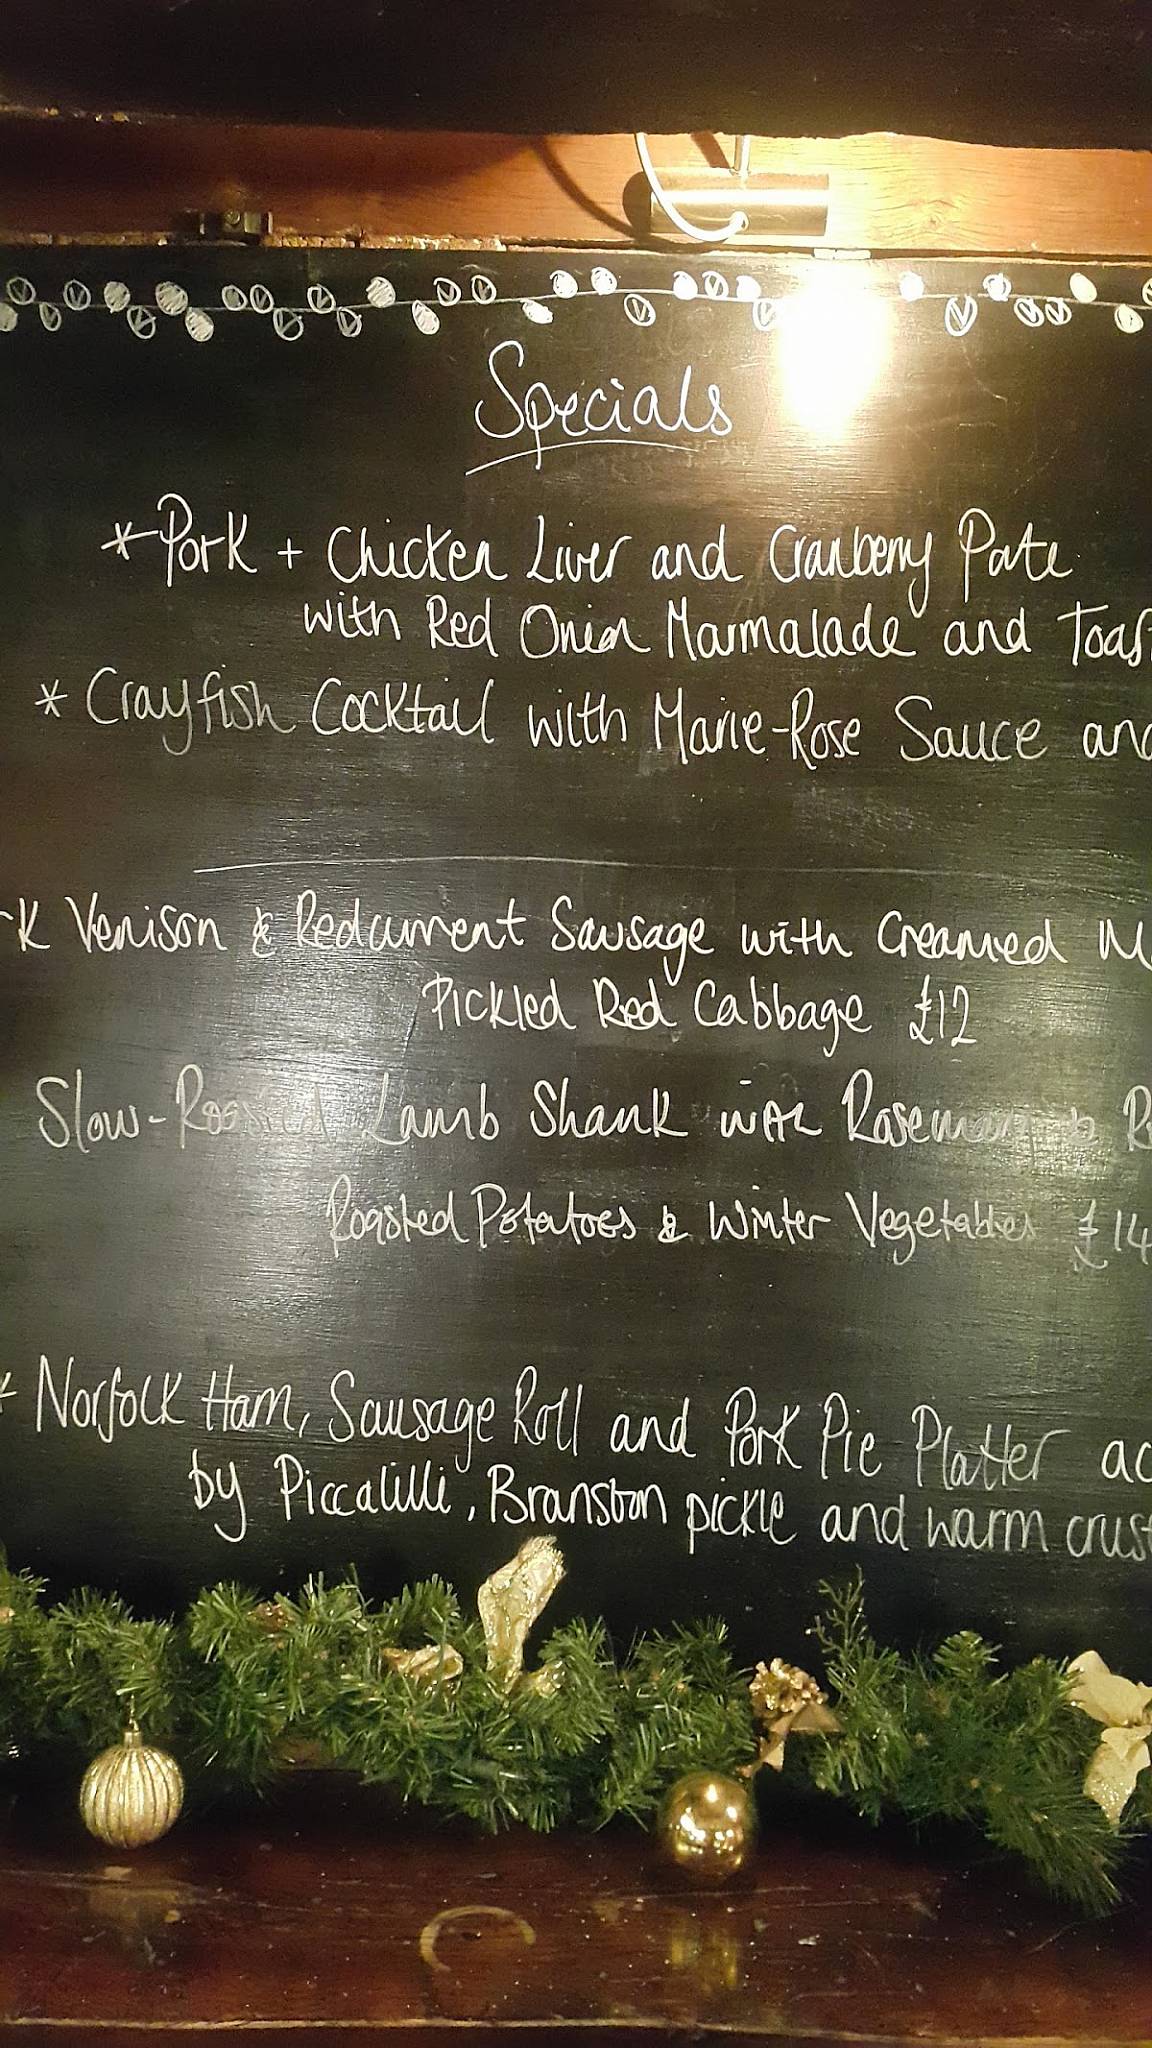 Specials
*Pork + Chicken Liver and Cranberry Pate
with Red Onion Marmalade and Toast
* Crayfish Cocktail with Marie-Rose Sauce and
Venison & Redcurrent Sausage with Creamed
Pickled Red Cabbage £12
Slow-Roasted Lamb Shank with Rosemary &
Roasted Potatoes & Winter Vegetables £14
* Norfolk Ham, Sausage Roll and Pork Pie Platter ac
by Piccalilli, Branston pickle and warm crust